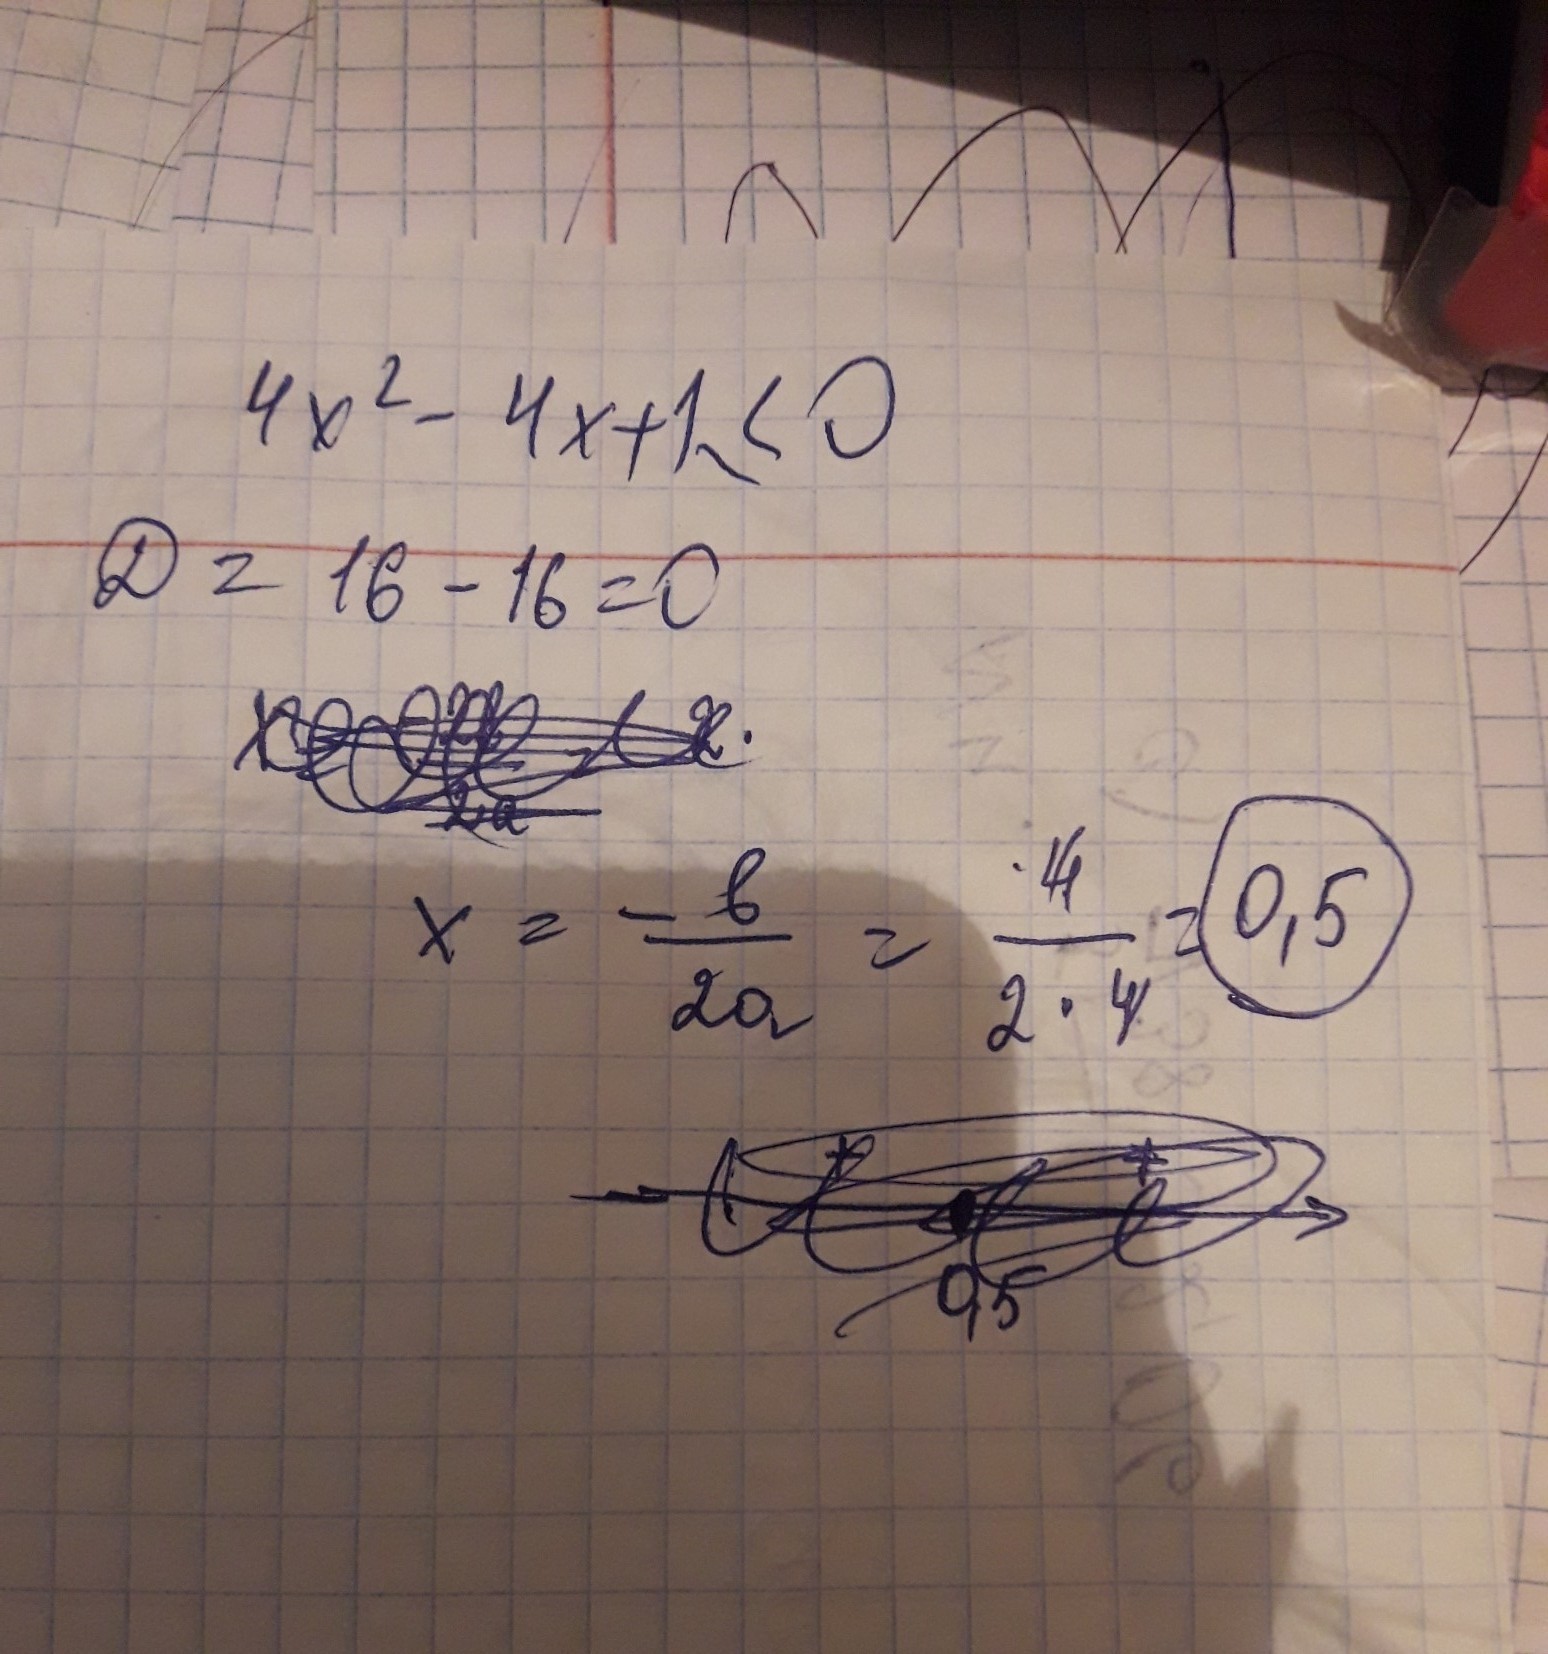 4x² - 4x+1 ≤ 0
D = 16 - 16 = 0
2a
x = - b/2a = 4/2·4 = 0,5
+ +
0,5